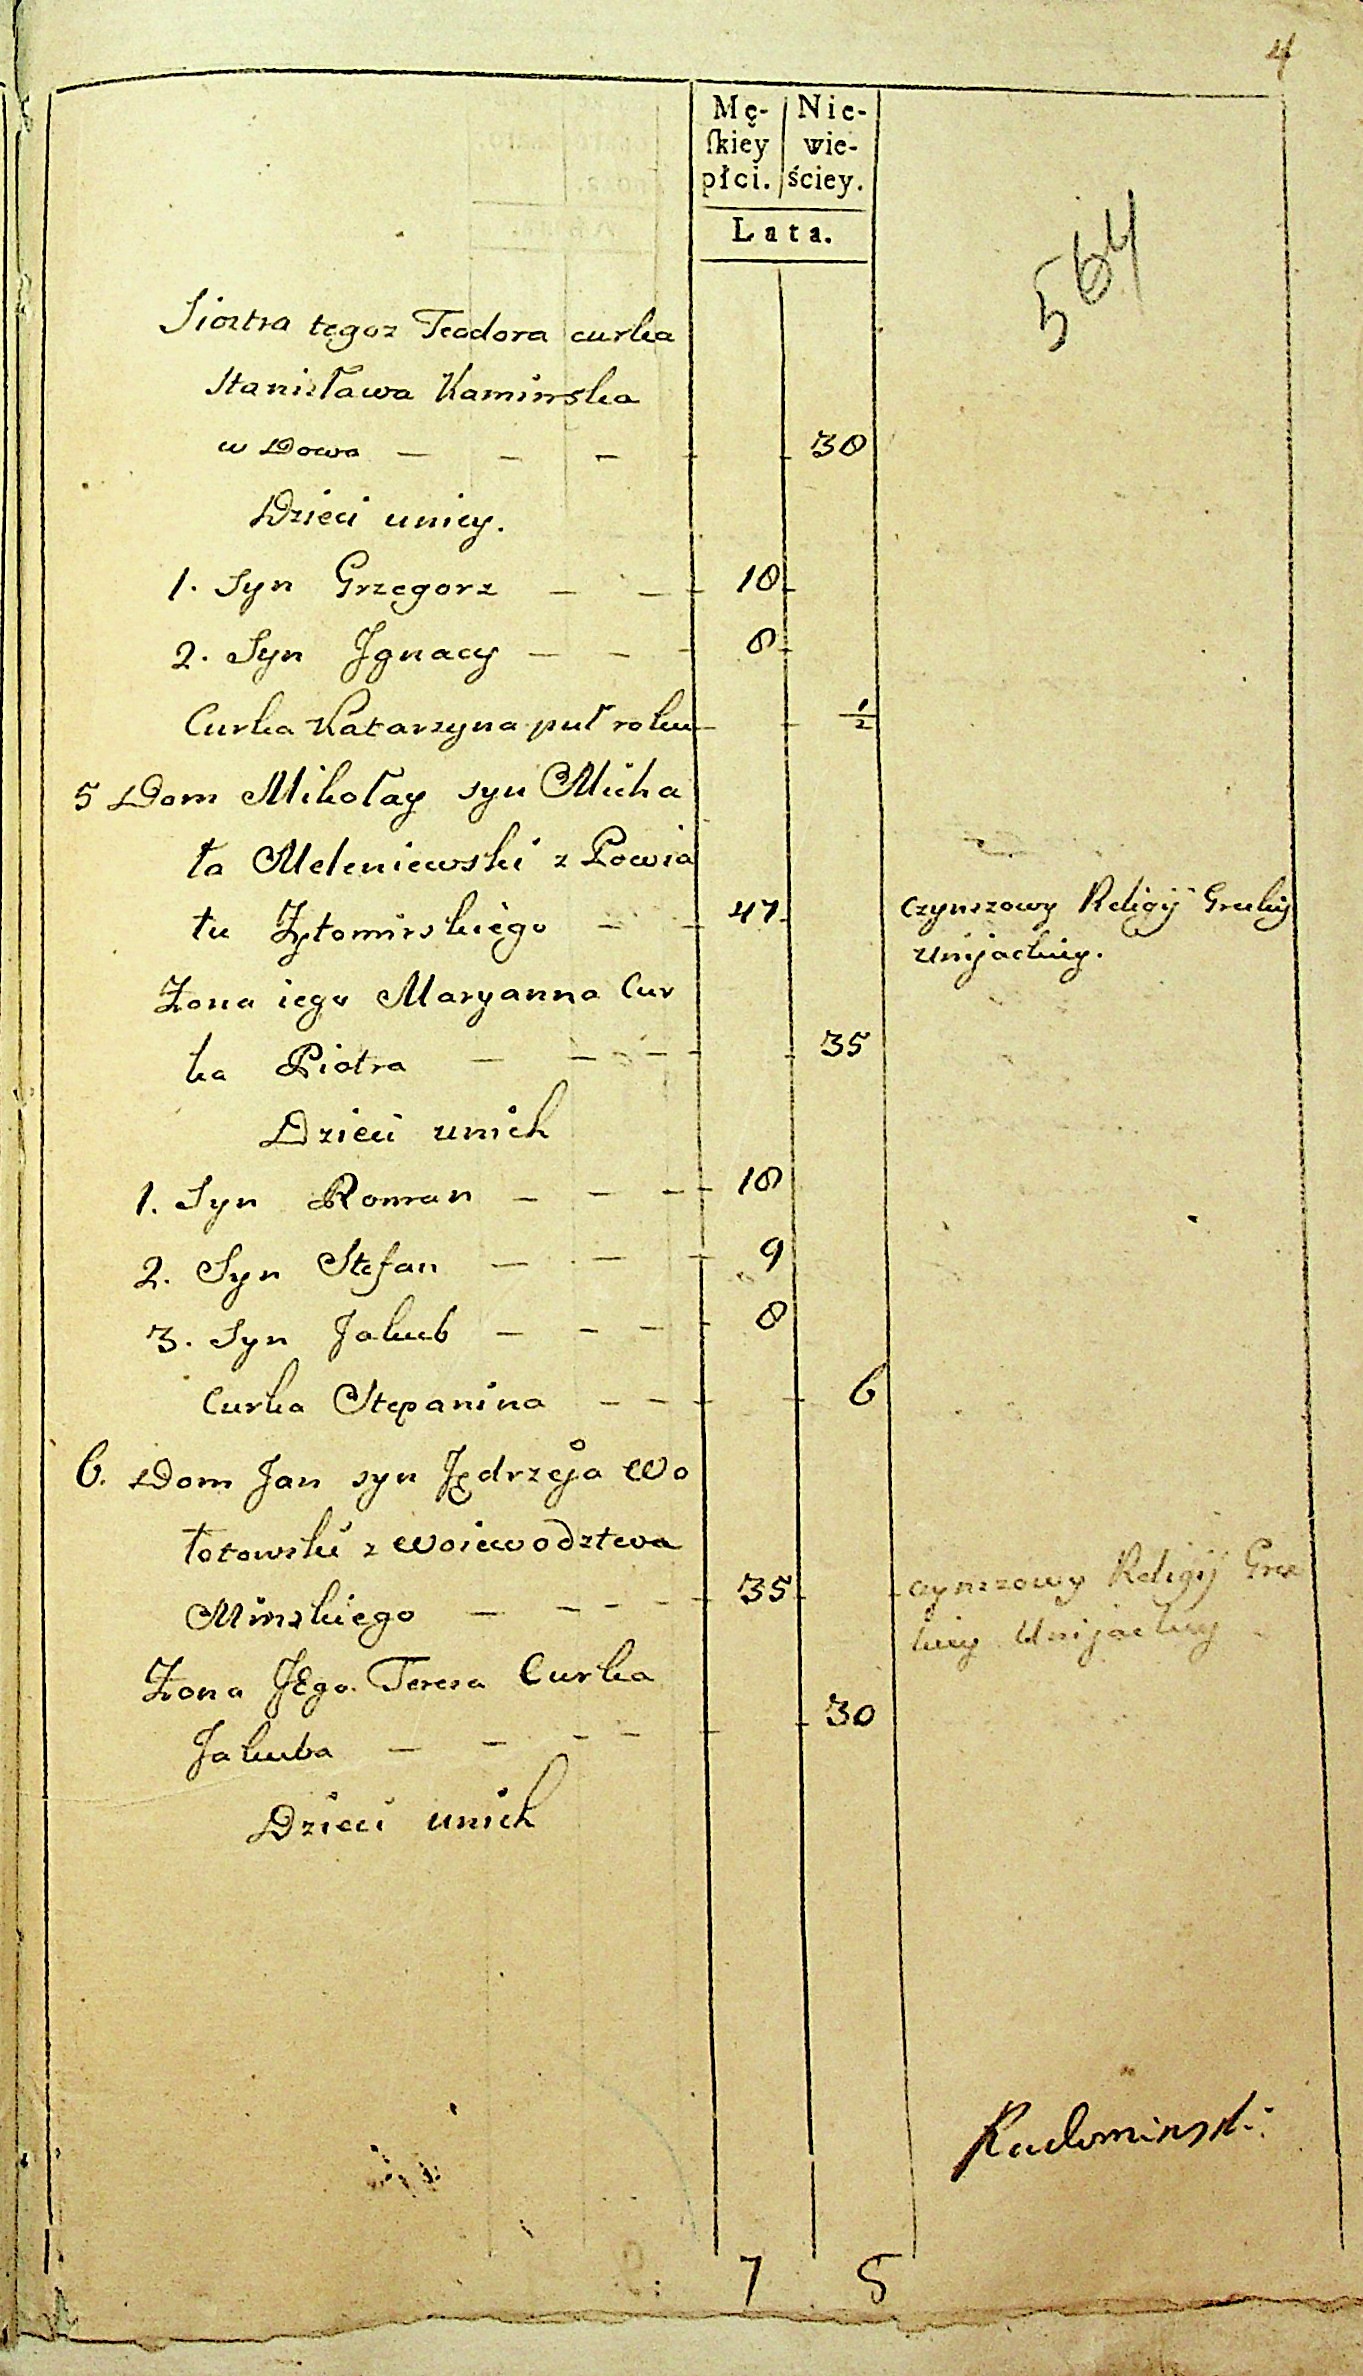 4
Mę- Nie-
ſkiey wie-
płci. ściey.
Lata.
564
Siostra tegoz Teodora curka
Stanisława Kaminska
w Dowa — — — 38
Dzieci unicy.
1. Syn Grzegorz — — 18
2. Syn Jgnacy — — - 8
Curka Katarzyna puł roku — 1/2
5 Dom Mikołay syn Micha
ła Meleniewski z Powia
tu Żytomirskiego — - 47 Czynszowy Religij Greckiy
Unijackiey.
Żona iego Maryanna Cur
ka Piotra — — — - 35
Dzieci unich
1. Syn Roman — — — 18
2. Syn Stefan — — - 9
3. Syn Jakub — - — - 8
Curka Stepanina — — 6
6. Dom Jan syn Jędrzeja Wo
łotowski z Woiewodztwa
Minskiego — — - - 35 czynszowy Religij Gre
kiey Unijackiey
Żona JEgo Teresa Curka
Jakuba — — - — 30
Dzieci unich
Radominski
7 5